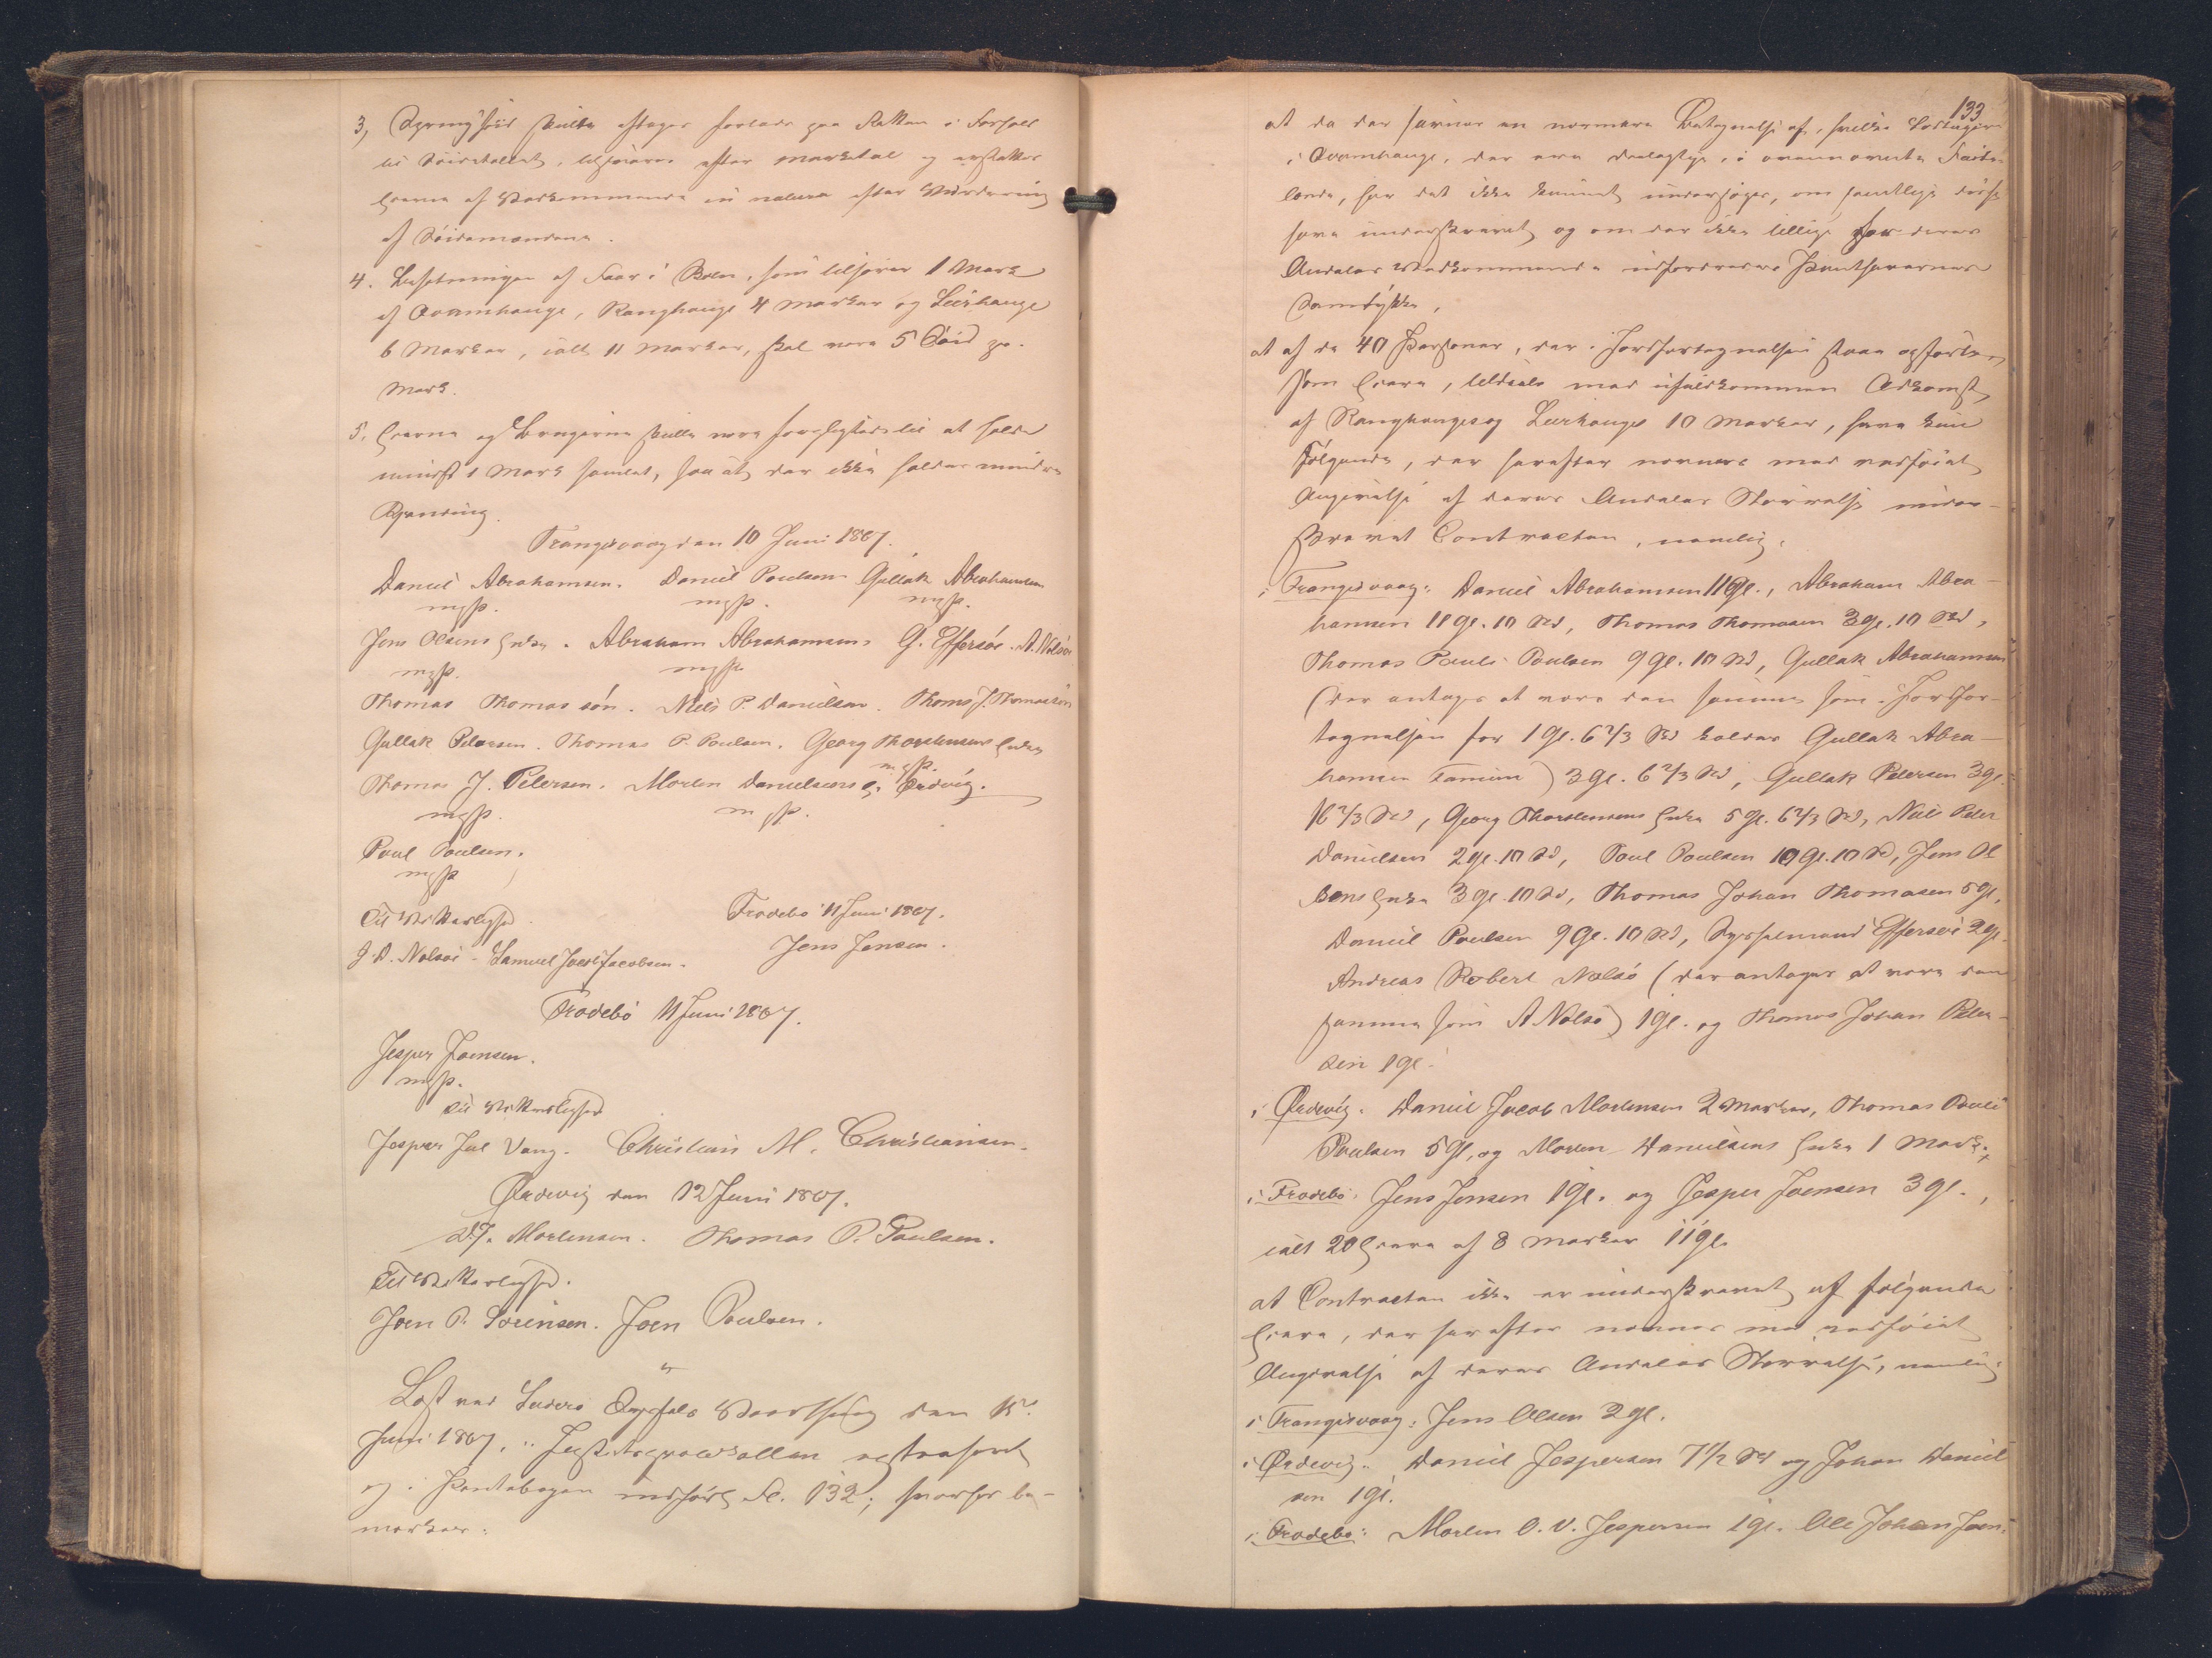 3, Springföid skulle aftages forlods paa Retten i Forhold
til Föidetallet, tilhörer efter Marketal og erstattes
Eierne af Vedkommende in natura efter Vurdering
af Söidemændene.
4. Besætningen af Faar i Boen, som tilhører 1 Mark
af Qvamhauge, Ranghauge 4 Marker og Leirhauge
6 Marker, ialt 11 Marker, skal være 5 Söid pr.
Mark.
5. Eierne og Brugerne skulle være forpligtede til at holde
mindst 1 Mark samlet, saa at der ikke holdes mindre
Trangisvaag den 10 Juni 1867.
Daniel Abrahamsen. Daniel Poulsen Gullak Abrahamsen
mgp. mgp. mgp.
Jens Olsens Enke. Abraham Abrahamsen G. Effersöe. A. Nolsöe
mgp. mgp.
Thomas Thomassön. Niels P. Danielsen. Thoms J. Thomassön
Gullak Petersen. Thomas P. Poulsen. Georg Thorstensens Enke
mgp.
Thomas J. Petersen. Morten Danielsens E. Ördevig.
mgp. mgp.
Poul Poulsen.
mgp
Til Vitterlighed. Frodebö 11 Juni 1867.
J. D. Nolsöe - Samuel Joen Jacobsen. Jens Jensen.
Frodebö 11 Juni 1867.
Jesper Joensen.
mgp.
til Vitterlighed
Jesper Jul Vang. Christian M. Christiansen.
Ördevig den 12 Juni 1867.
D. J. Mortensen. Thomas P. Paulsen.
Til Vitterlighed.
Joen P. Sörensen. Joen Poulsen.
Læst ved Suderö Syssels Vaarthing den 15de
Juni 1867, i Justitsprotokollen extraheret
og i Pantebogen indført Fol. 132; hvorfor be-
mærkes:
133
at da der savnes en nærmere Betegnelse af, hvilke Lodseiere
i Qvamhauge, der ere deelagtige i ovennævnte Faste-
lande, har det ikke kunnet undersøges, om samtlige disse
have underskrevet og om der ikke tillige for deres
Andeles Vedkommende udfordredes Panthavernes
Samtykke,
at af de 40 Personer, der i Jordfortegnelsen staae opførte
som Eiere, tildeels med ufuldkommen Adkomst,
af Ranghauges og Leirhauges 10 Marker, have kun
Følgende, der herefter nævnes med vedföiet
Angivelse af deres Andeles Størrelse under-
skrevet Contracten, nemlig:
i Trangisvaag: Daniel Abrahamsen 11 Gl., Abraham Abra-
hamsen 11 Gl. 10 Sk, Thomas Thomasen 3 Gl. 10 Sk,
Thomas Pauli Poulsen 9 Gl. 10 Sk, Gullak Abrahamsen
(der antages at være den samme som i Jordfor-
tegnelsen for 1 Gl. 6 2/3 Sk kaldes Gullak Abra-
hamsen Famien) 3 Gl. 6 2/3 Sk, Gullak Petersen 3 Gl.
16 2/3 Sk, Georg Thorstensens Enke 5 Gl. 6 2/3 Sk, Niels Peter
Danielsen 2 Gl. 10 Sk, Poul Poulsen 10 Gl. 10 Sk, Jens Ol
sens Enke 3 Gl. 10 Sk, Thomas Johan Thomasen 5 Gl,
Daniel Poulsen 9 Gl. 10 Sk, Sysselmand Effersöe 2 Gl.
Andreas Robert Nolsö (der antages at være den
samme som A Nolsö) 1 Gl. og Thomas Johan Peter-
sen 1 Gl.
i Ördevig: Daniel Jacob Mortensen 2 Marker, Thomas Pouli
Poulsen 5 Gl, og Morten Danielsens Enke 1 Mark.
i Frodebö: Jens Jensen 1 Gl. og Jesper Joensen 3 Gl.,
ialt 20 Eiere af 8 Marker 11 Gl.
at Contracten ikke er underskrevet af følgende
Eiere, der herefter nævnes med vedföiet
Angivelse af deres Andeles Størrelse, nemlig:
i Trangisvaag: Jens Olsen 2 Gl.
i Ördevig: Daniel Jespersen 7 1/2 Sk og Johan Daniel
sen 1 Gl.
i Frodebö: Morten O. V. Jespersen 1 Gl. Ole Johan Joen-